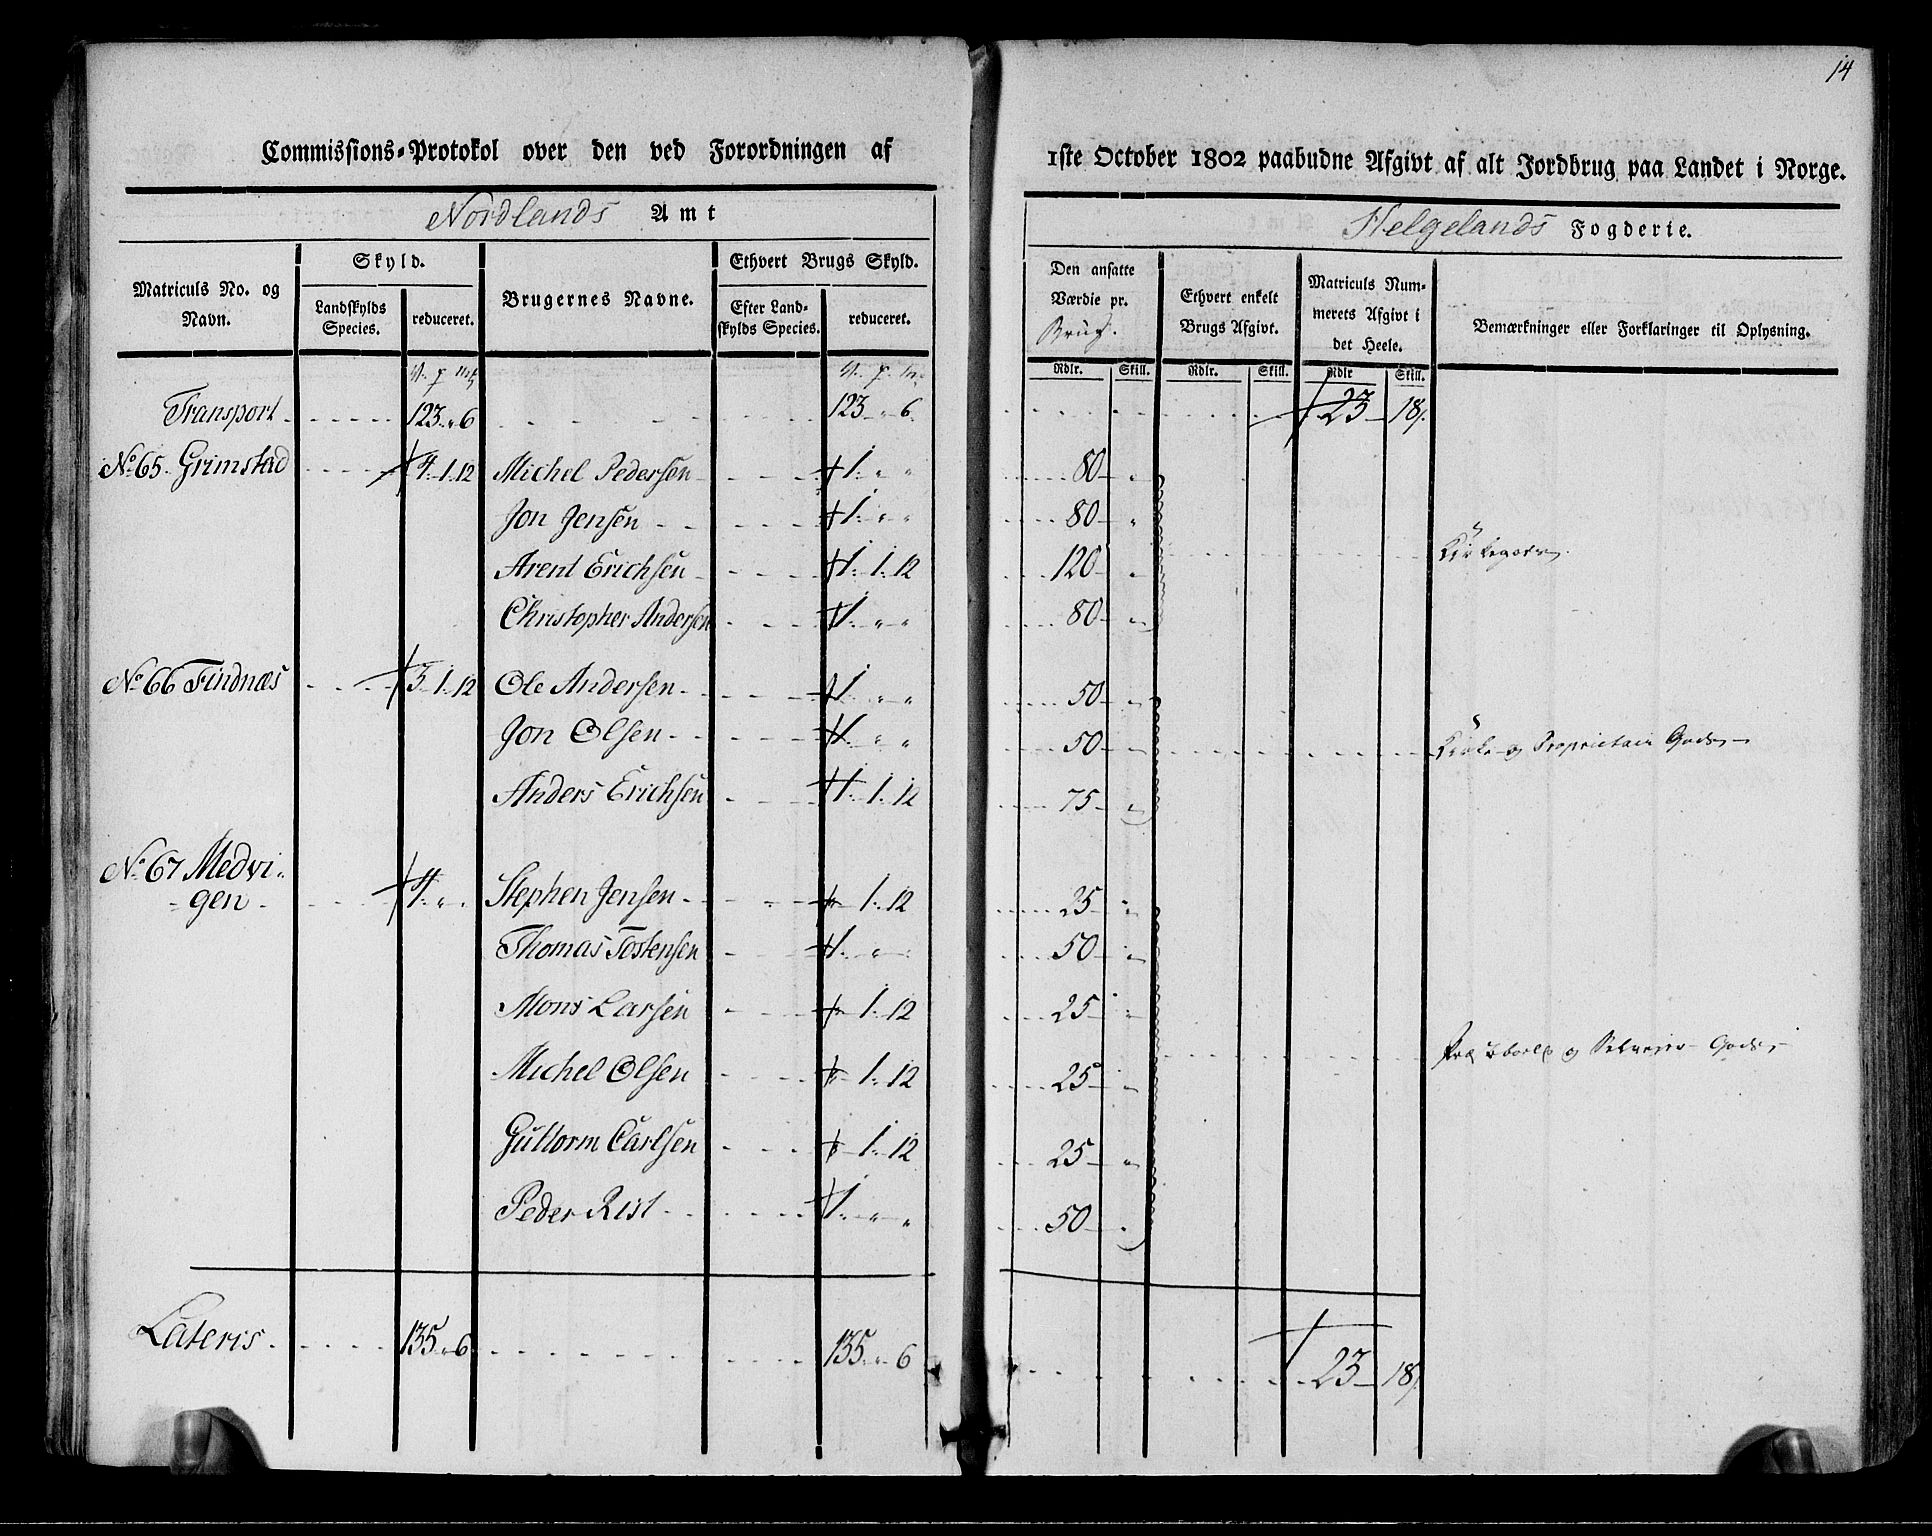 14
Commissions-Protokol over den ved Forordningen af 1ste October 1802 paabudne Afgivt af alt Jordbrug paa Landet i Norge.
Nordlands Amt
Helgelands Fogderie.
Matriculs No. og Navn.
Skyld.
Landskylds Species.
reduceret.
Brugernes Navne.
Ethvert Brugs Skyld.
Efter Landskylds Species.
reduceret.
Den ansatte Værdie pr. Brug.
Ethvert enkelt Brugs Afgivt.
Matriculs Nummerets Afgivt i det Heele.
Bemærkninger eller Forklaringer til Oplysning.
V. p. mk V. p. m. Rdlr. Skill. Rdlr. Skill. Rdlr Skill.
Transport 123 " 6 123 " 6 23 18
No. 65. Grimstad 4. 1. 12 Michel Pedersen 1. " " 80 "
Jon Jensen 1. " " 80 "
Arent Erichsen 1. 1. 12 120 " Kirkegods
Christopher Andersen 1. " " 80 "
No. 66 Findnæs 3. 1. 12 Ole Andersen 1. " " 50 "
Jon Olsen 1. " " 50 " Kirke- og Proprietair Gods
Anders Erichsen 1. 1. 12 75 "
No. 67 Medvi-
-gen 4. " . Stephen Jensen " 1. 12 25 "
Thomas Tostensen 1. " " 50 "
Mons Larsen " 1. 12 25 "
Præsteboels og Selveier Gods
Michel Olsen " 1. 12 25 "
Guttorm Carlsen " 1. 12 25 "
Peder Rist 1. " " 50 "
Lateris 135 " 6 135 " 6 23 18